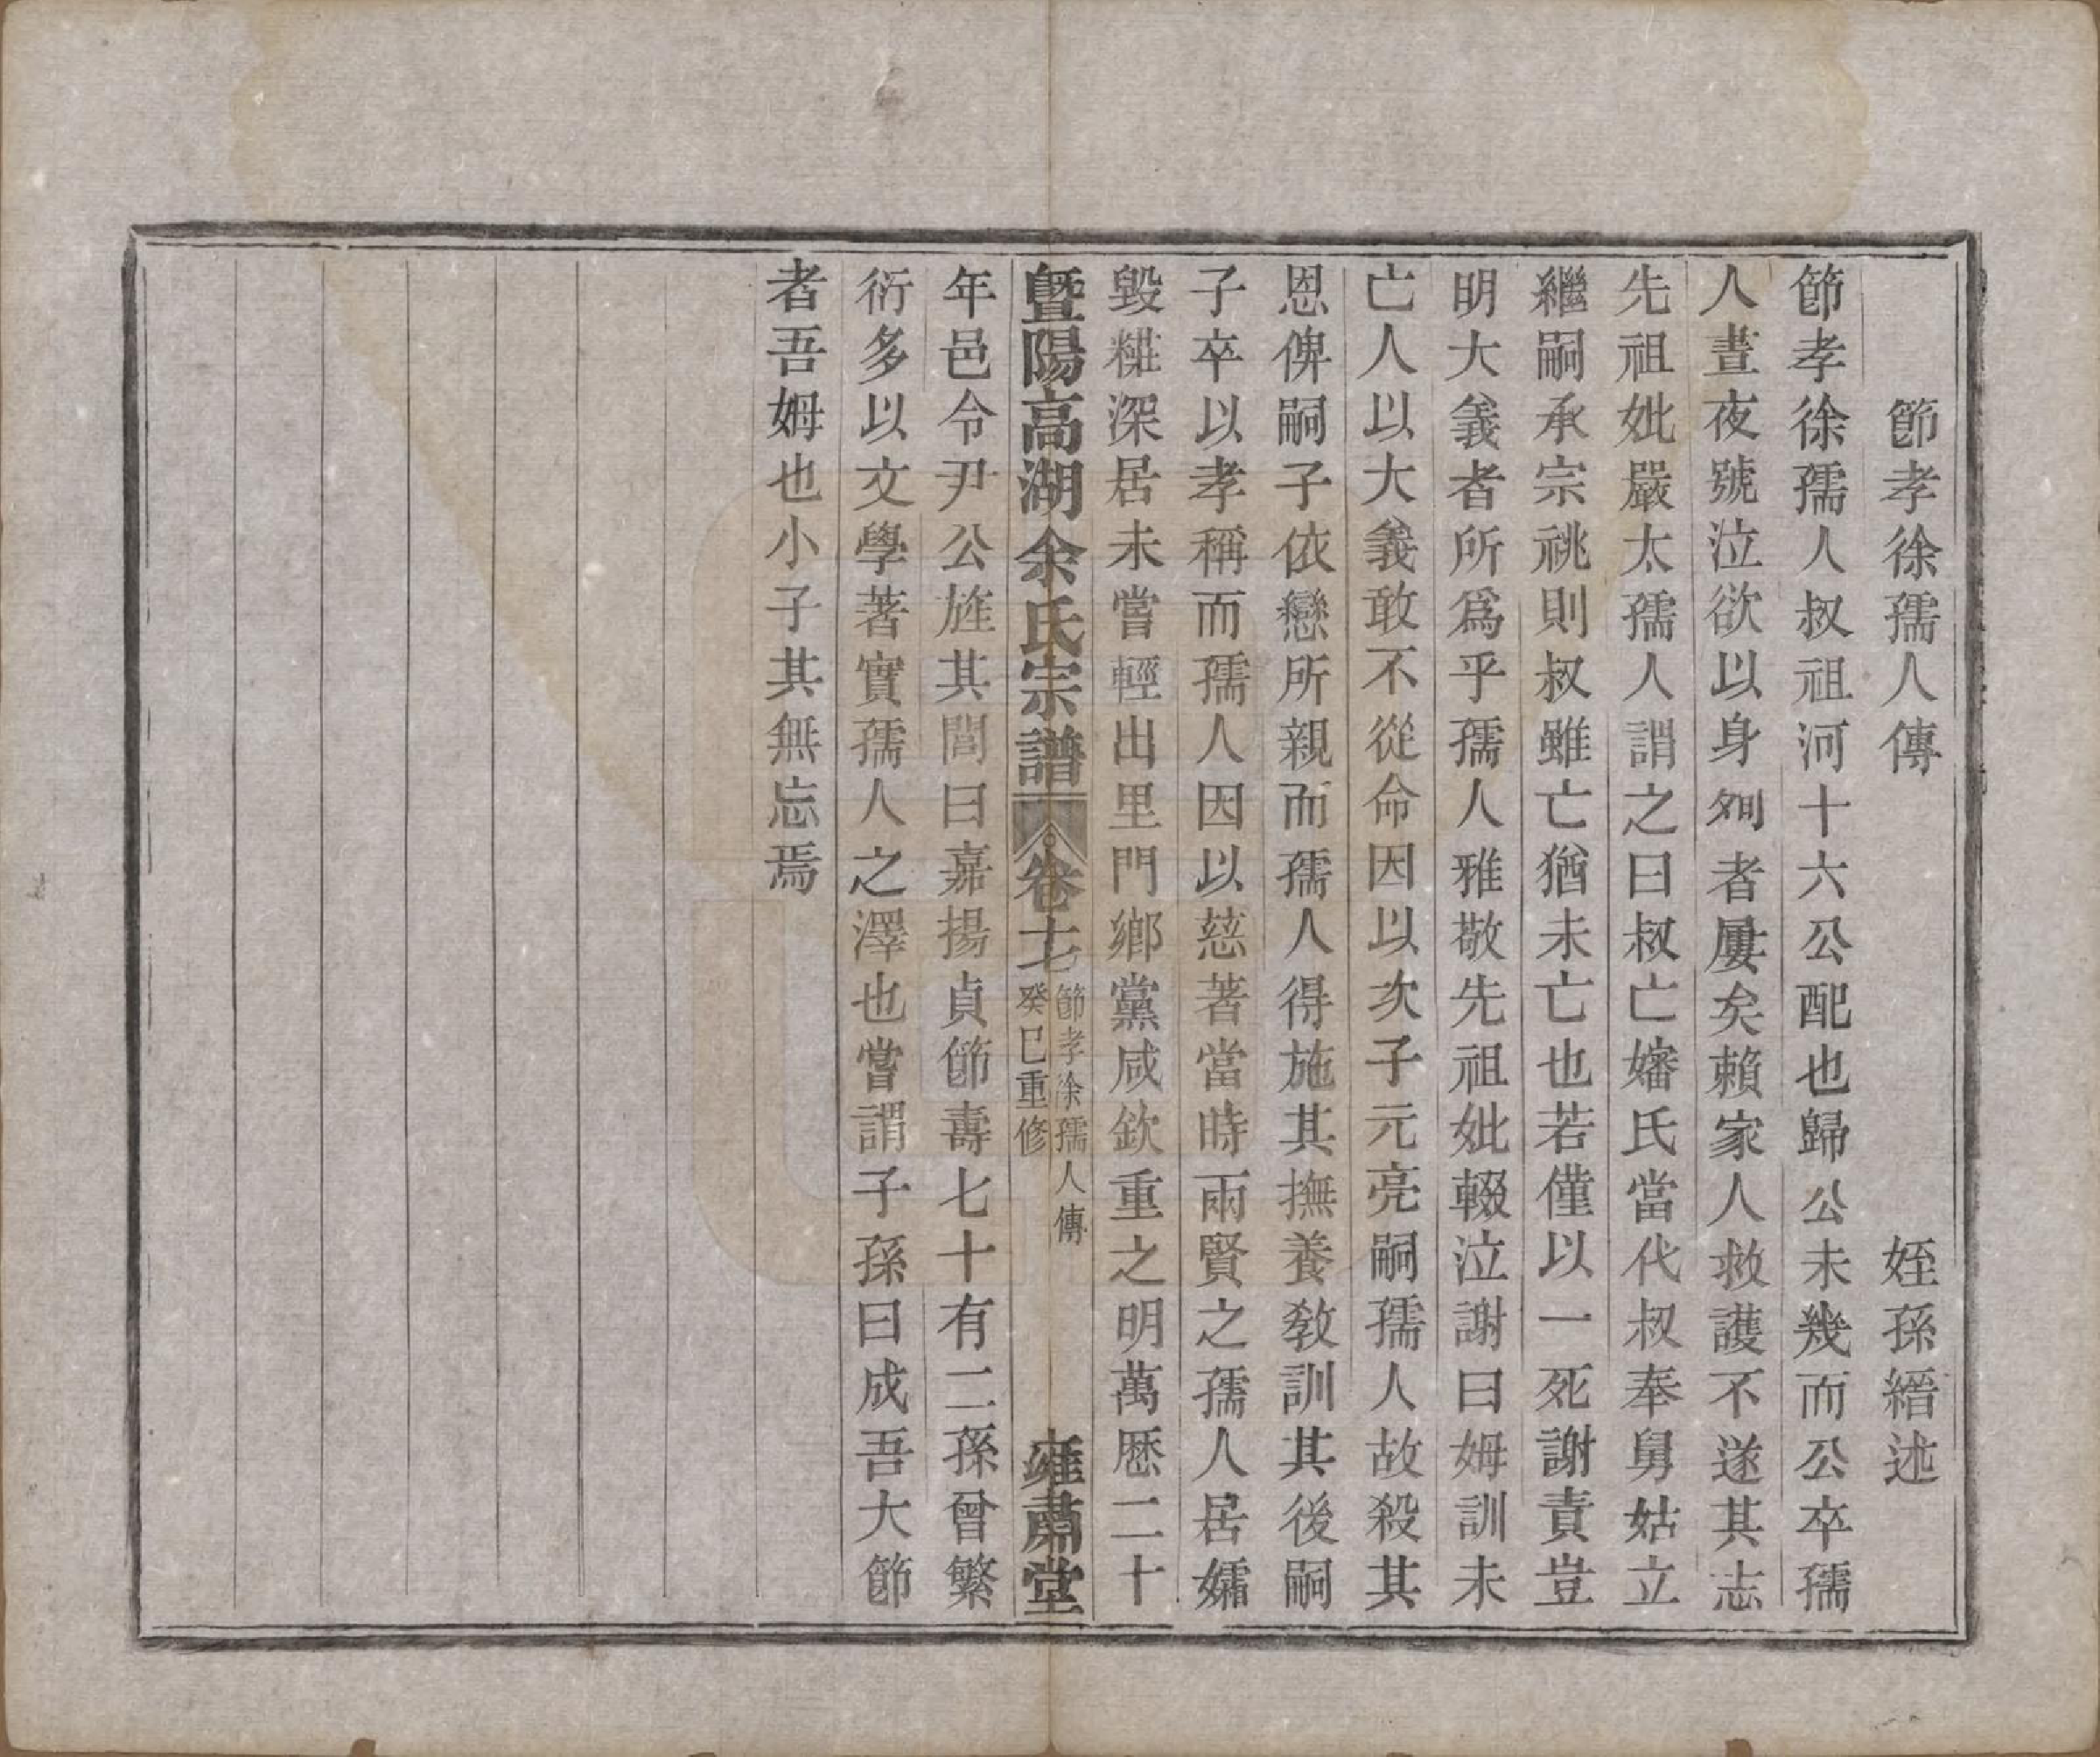 節孝徐孺人傳 姪孫縉述
節孝徐孺人叔祖河十六公配也歸公未幾而公卒孺
人晝夜號泣欲以身殉者屢矣賴家人救護不遂其志
先祖妣嚴太孺人謂之曰叔亡嬸氏當代叔奉舅姑立
繼嗣承宗祧則叔雖亡猶未亡也若僅以一死謝責豈
明大義者所爲乎孺人雅敬先祖妣輟泣謝曰姆訓未
亡人以大義敢不從命因以次子元亮嗣孺人故殺其
恩俾嗣子依戀所親而孺人得施其撫養教訓其後嗣
子卒以孝稱而孺人因以慈著當時兩賢之孺人居孀
毀粧深居未嘗輕出里門鄉黨咸欽重之明萬歷二十
暨陽高湖余氏宗譜 卷十七 節孝徐孺人傳 癸巳重修 雍肅堂
年邑令尹公旌其閭曰嘉揚貞節壽七十有二孫曾繁
衍多以文學著實孺人之澤也嘗謂子孫曰成吾大節
者吾姆也小子其無忘焉